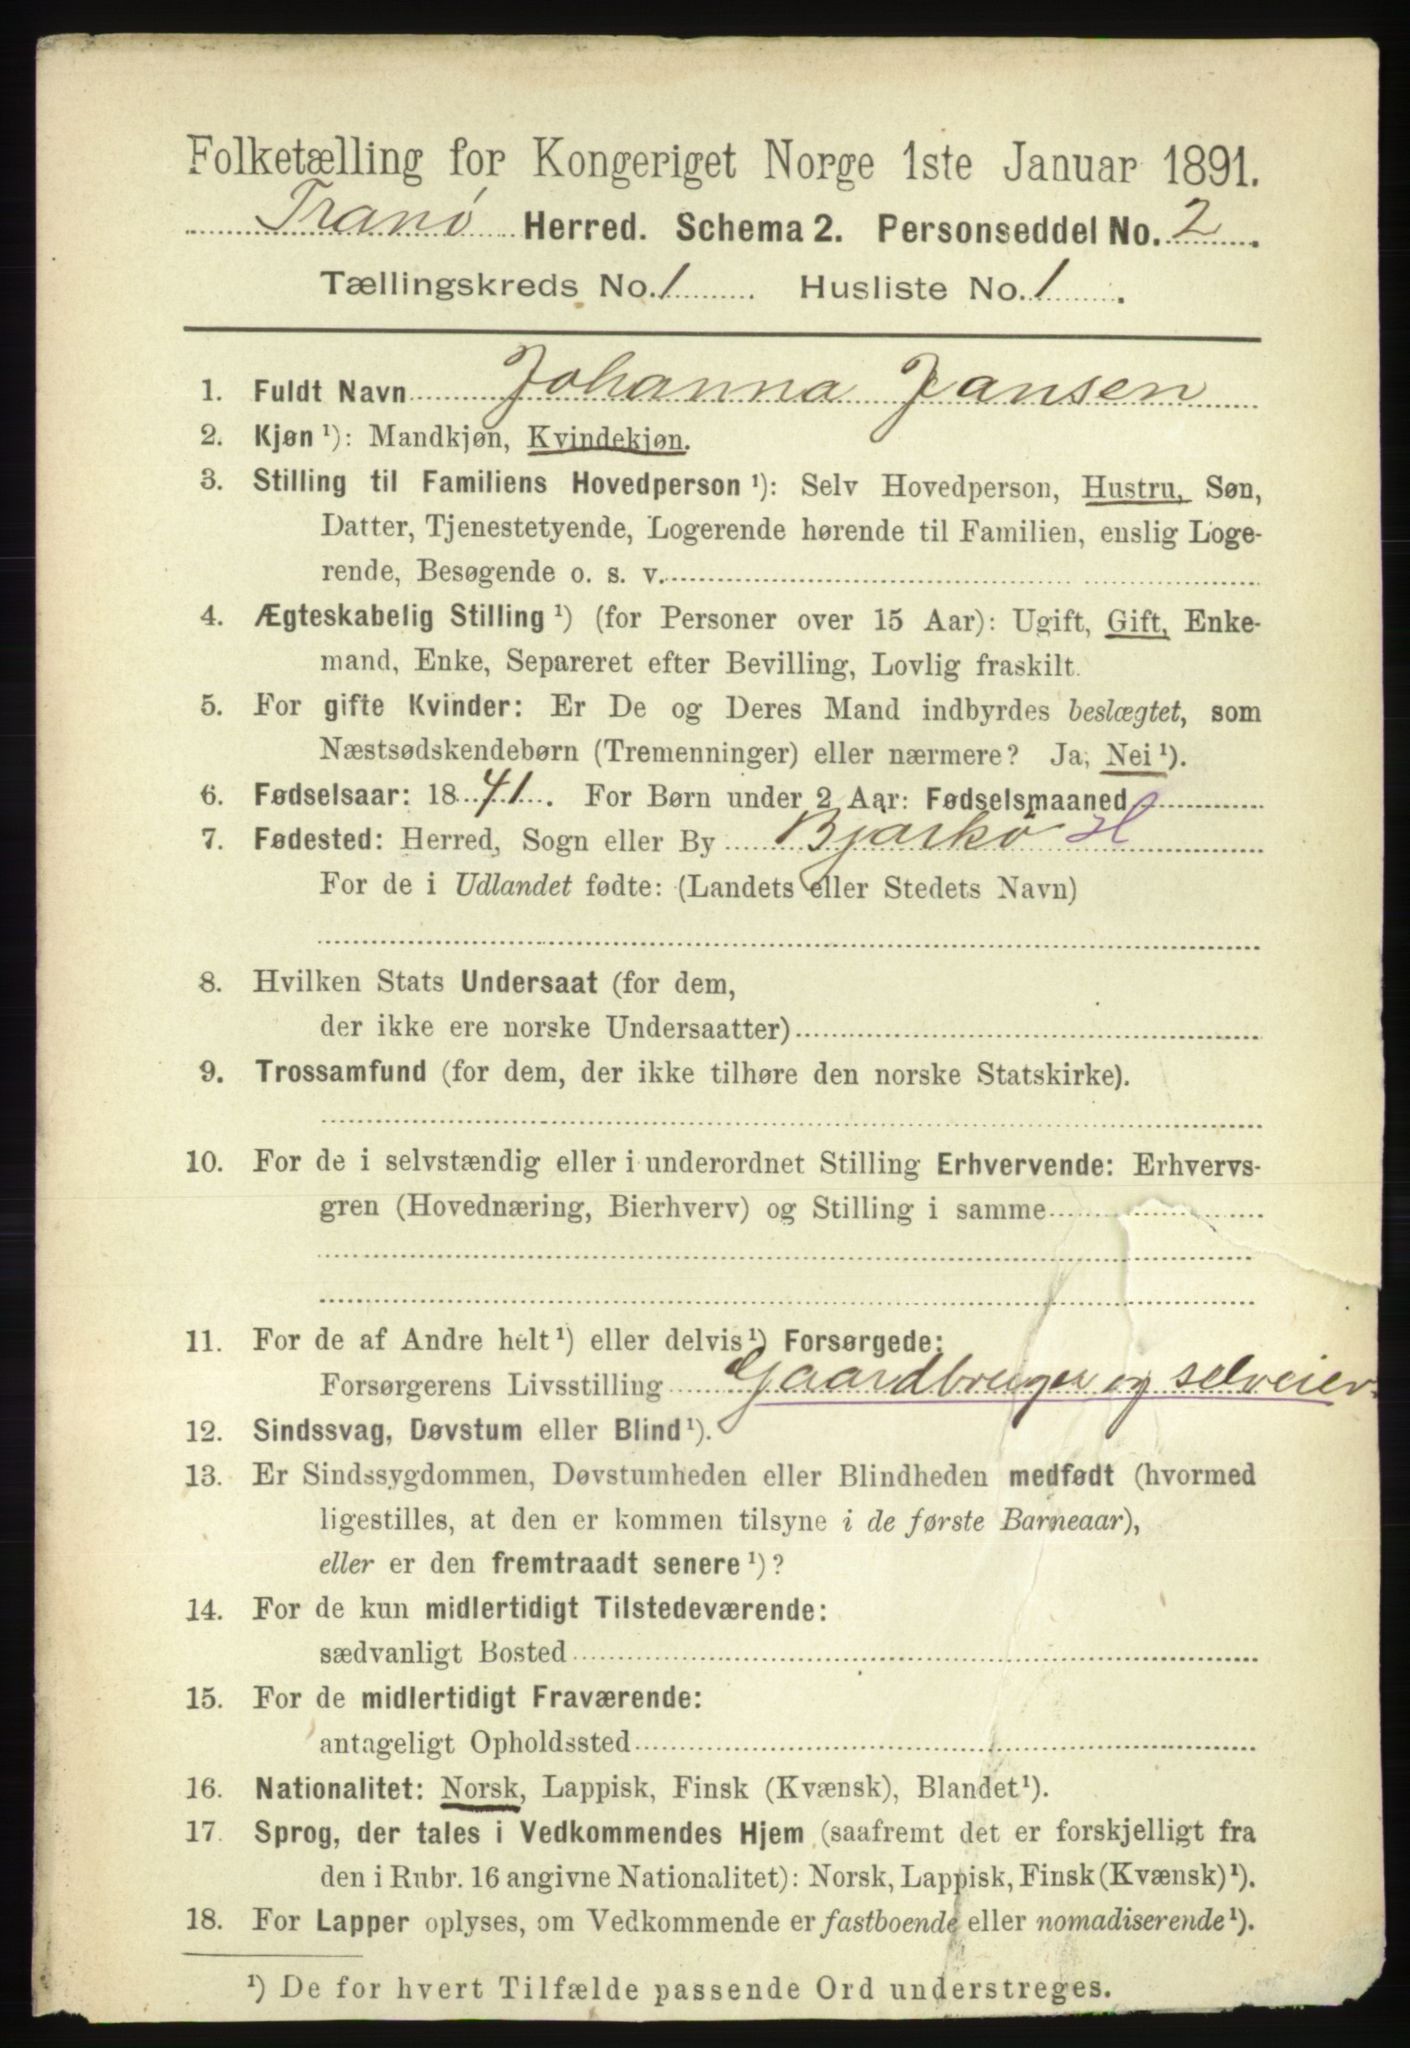 Folketælling for Kongeriget Norge 1ste Januar 1891.
Tranø Herred. Schema 2. Personseddel No. 2.
Tællingskreds No. 1. Husliste No. 1.
1. Fuldt Navn Johanna Jansen
2. Kjøn ¹): Mandkjøn, Kvindekjøn.
3. Stilling til Familiens Hovedperson ¹): Selv Hovedperson, Hustru, Søn,
Datter, Tjenestetyende, Logerende hørende til Familien, enslig Loge-
rende, Besøgende o. s. v.
4. Ægteskabelig Stilling ¹) (for Personer over 15 Aar): Ugift, Gift, Enke-
mand, Enke, Separeret efter Bevilling, Lovlig fraskilt.
5. For gifte Kvinder: Er De og Deres Mand indbyrdes beslægtet, som
Næstsødskendebørn (Tremenninger) eller nærmere? Ja, Nei ¹).
6. Fødselsaar: 1841. For Børn under 2 Aar: Fødselsmaaned
7. Fødested: Herred, Sogn eller By Bjarkö H
For de i Udlandet fødte: (Landets eller Stedets Navn)
8. Hvilken Stats Undersaat (for dem,
der ikke ere norske Undersaatter)
9. Trossamfund (for dem, der ikke tilhøre den norske Statskirke).
10. For de i selvstændig eller i underordnet Stilling Erhvervende: Erhvervs-
gren (Hovednæring, Bierhverv) og Stilling i samme
11. For de af Andre helt ¹) eller delvis ¹) Forsørgede:
Forsørgerens Livsstilling Gaardbruger og selveier
12. Sindssvag, Døvstum eller Blind ¹).
13. Er Sindssygdommen, Døvstumheden eller Blindheden medfødt (hvormed
ligestilles, at den er kommen tilsyne i de første Barneaar),
eller er den fremtraadt senere ¹)?
14. For de kun midlertidigt Tilstedeværende:
sædvanligt Bosted
15. For de midlertidigt Fraværende:
antageligt Opholdssted
16. Nationalitet: Norsk, Lappisk, Finsk (Kvænsk), Blandet ¹).
17. Sprog, der tales i Vedkommendes Hjem (saafremt det er forskjelligt fra
den i Rubr. 16 angivne Nationalitet): Norsk, Lappisk, Finsk (Kvænsk) ¹).
18. For Lapper oplyses, om Vedkommende er fastboende eller nomadiserende ¹).
¹) De for hvert Tilfælde passende Ord understreges.